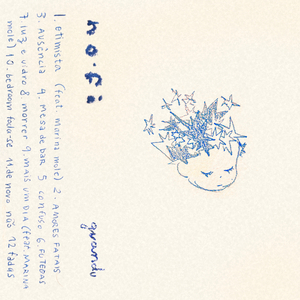 no.fi
quando
1 otimista (feat marina mole) 2. AMORES FATAIS
3. Ausência 4. mesa de bar 5 confuso 6 FUTEBAS
7 luz e vidro 8 morrer 9 mais um dia (feat. MARINA
mole) 10. bedroom 11 de novo nós 12 fadas